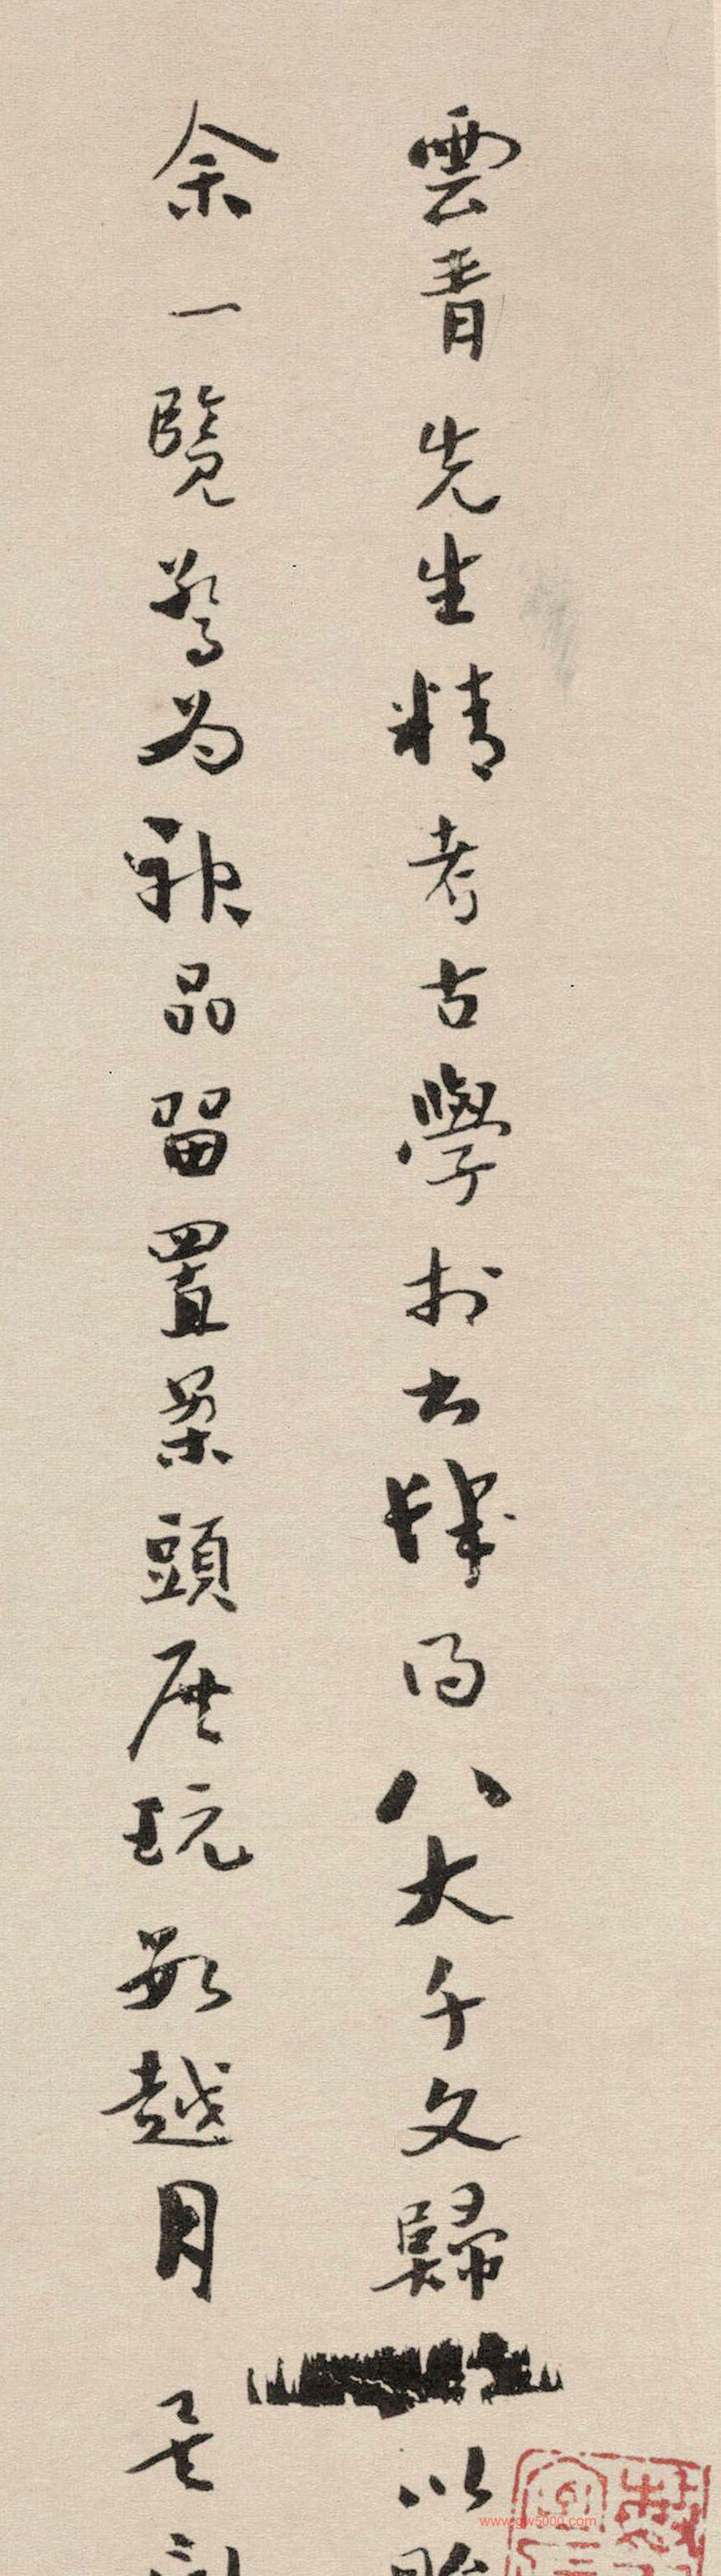 雲青先生精考古學於書肆得八大千文歸以
余一覽驚為神品留置案頭展玩數越月
www.gw5000.com